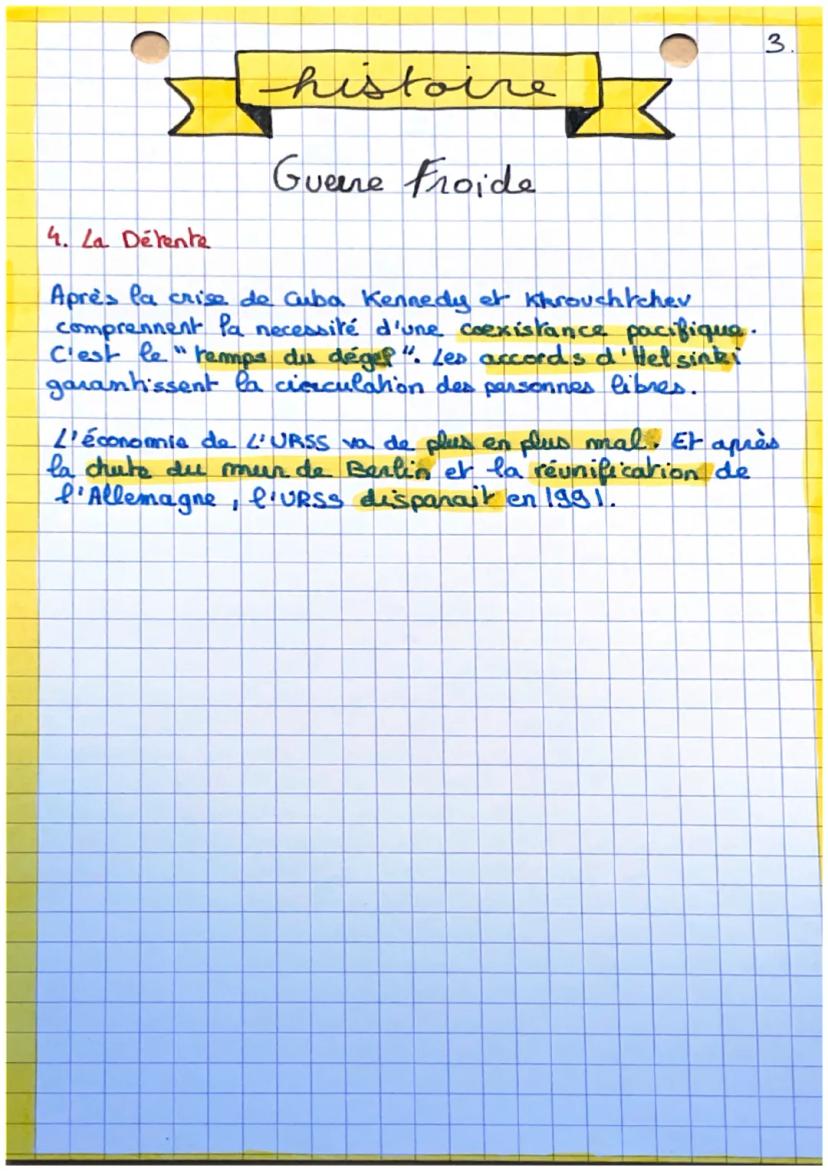 3.
histoire
Guerre Froide
4. La Détente
Après la crise de Cuba Kennedy et Khrouchtchev
comprennent la necessité d'une coexistance pacifique.
C'est le "temps du dégel". Les accords d'Helsinki
garantissent la cirrculation des personnes libres.
L'économie de L'URSS va de plus en plus mal. Et après
la chute du mur de Berlin et la réunification de
l'Allemagne, l'URSS disparait en 1991.